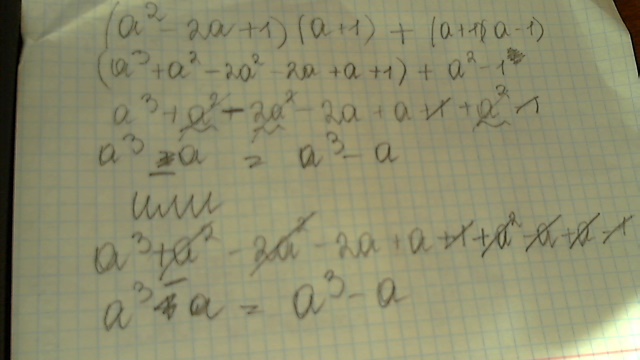 (a² - 2a + 1) (a + 1) + (a+1)(a - 1)
(a³ + a² - 2a² - 2a + a + 1) + a² - 1
a³ + a² - 2a² - 2a + a + 1 + a² - 1
a³ - a = a³ - a
или
a³ + a² - 2a² - 2a + a + 1 + a² - a + a - 1
a³ - a = a³ - a